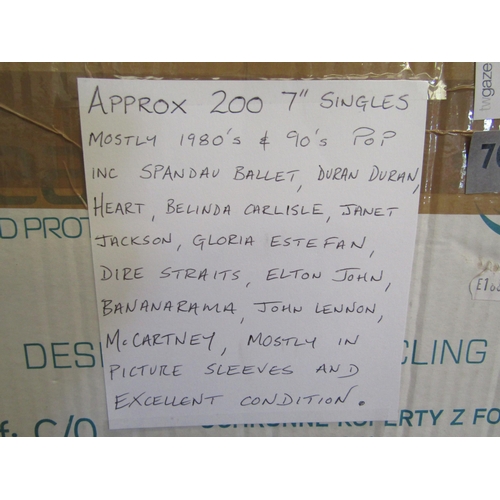 APPROX 200 7" SINGLES
MOSTLY 1980's & 90's POP
INC SPANDAU BALLET, DURAN DURAN,
HEART, BELINDA CARLISLE, JANET
JACKSON, GLORIA ESTEFAN,
DIRE STRAITS, ELTON JOHN,
BANANARAMA, JOHN LENNON,
McCARTNEY, MOSTLY IN
PICTURE SLEEVES AND
EXCELLENT CONDITION.
twgaze
D PROT
DESI
CLING
f. C/O
OCHRONNE KOPERTY Z FO